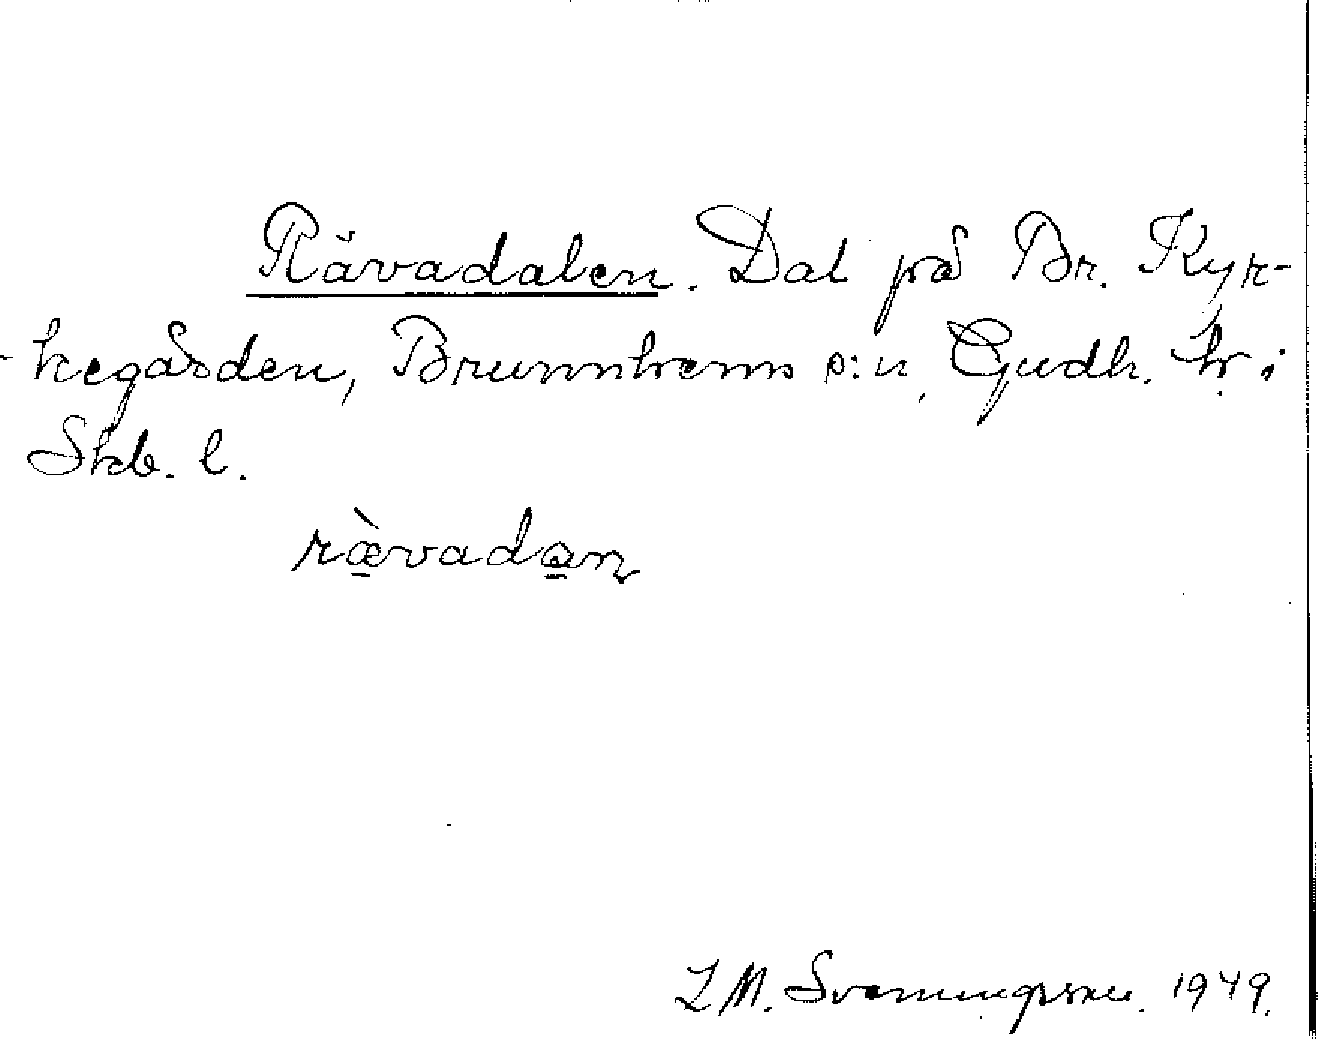 Rävadalen. Dal på Br. Kyr-
kegården, Brunnhems s:n, Gudh. hr. i
Skb. l.
ræ̀vadan
I M. Svenningsson. 1949.